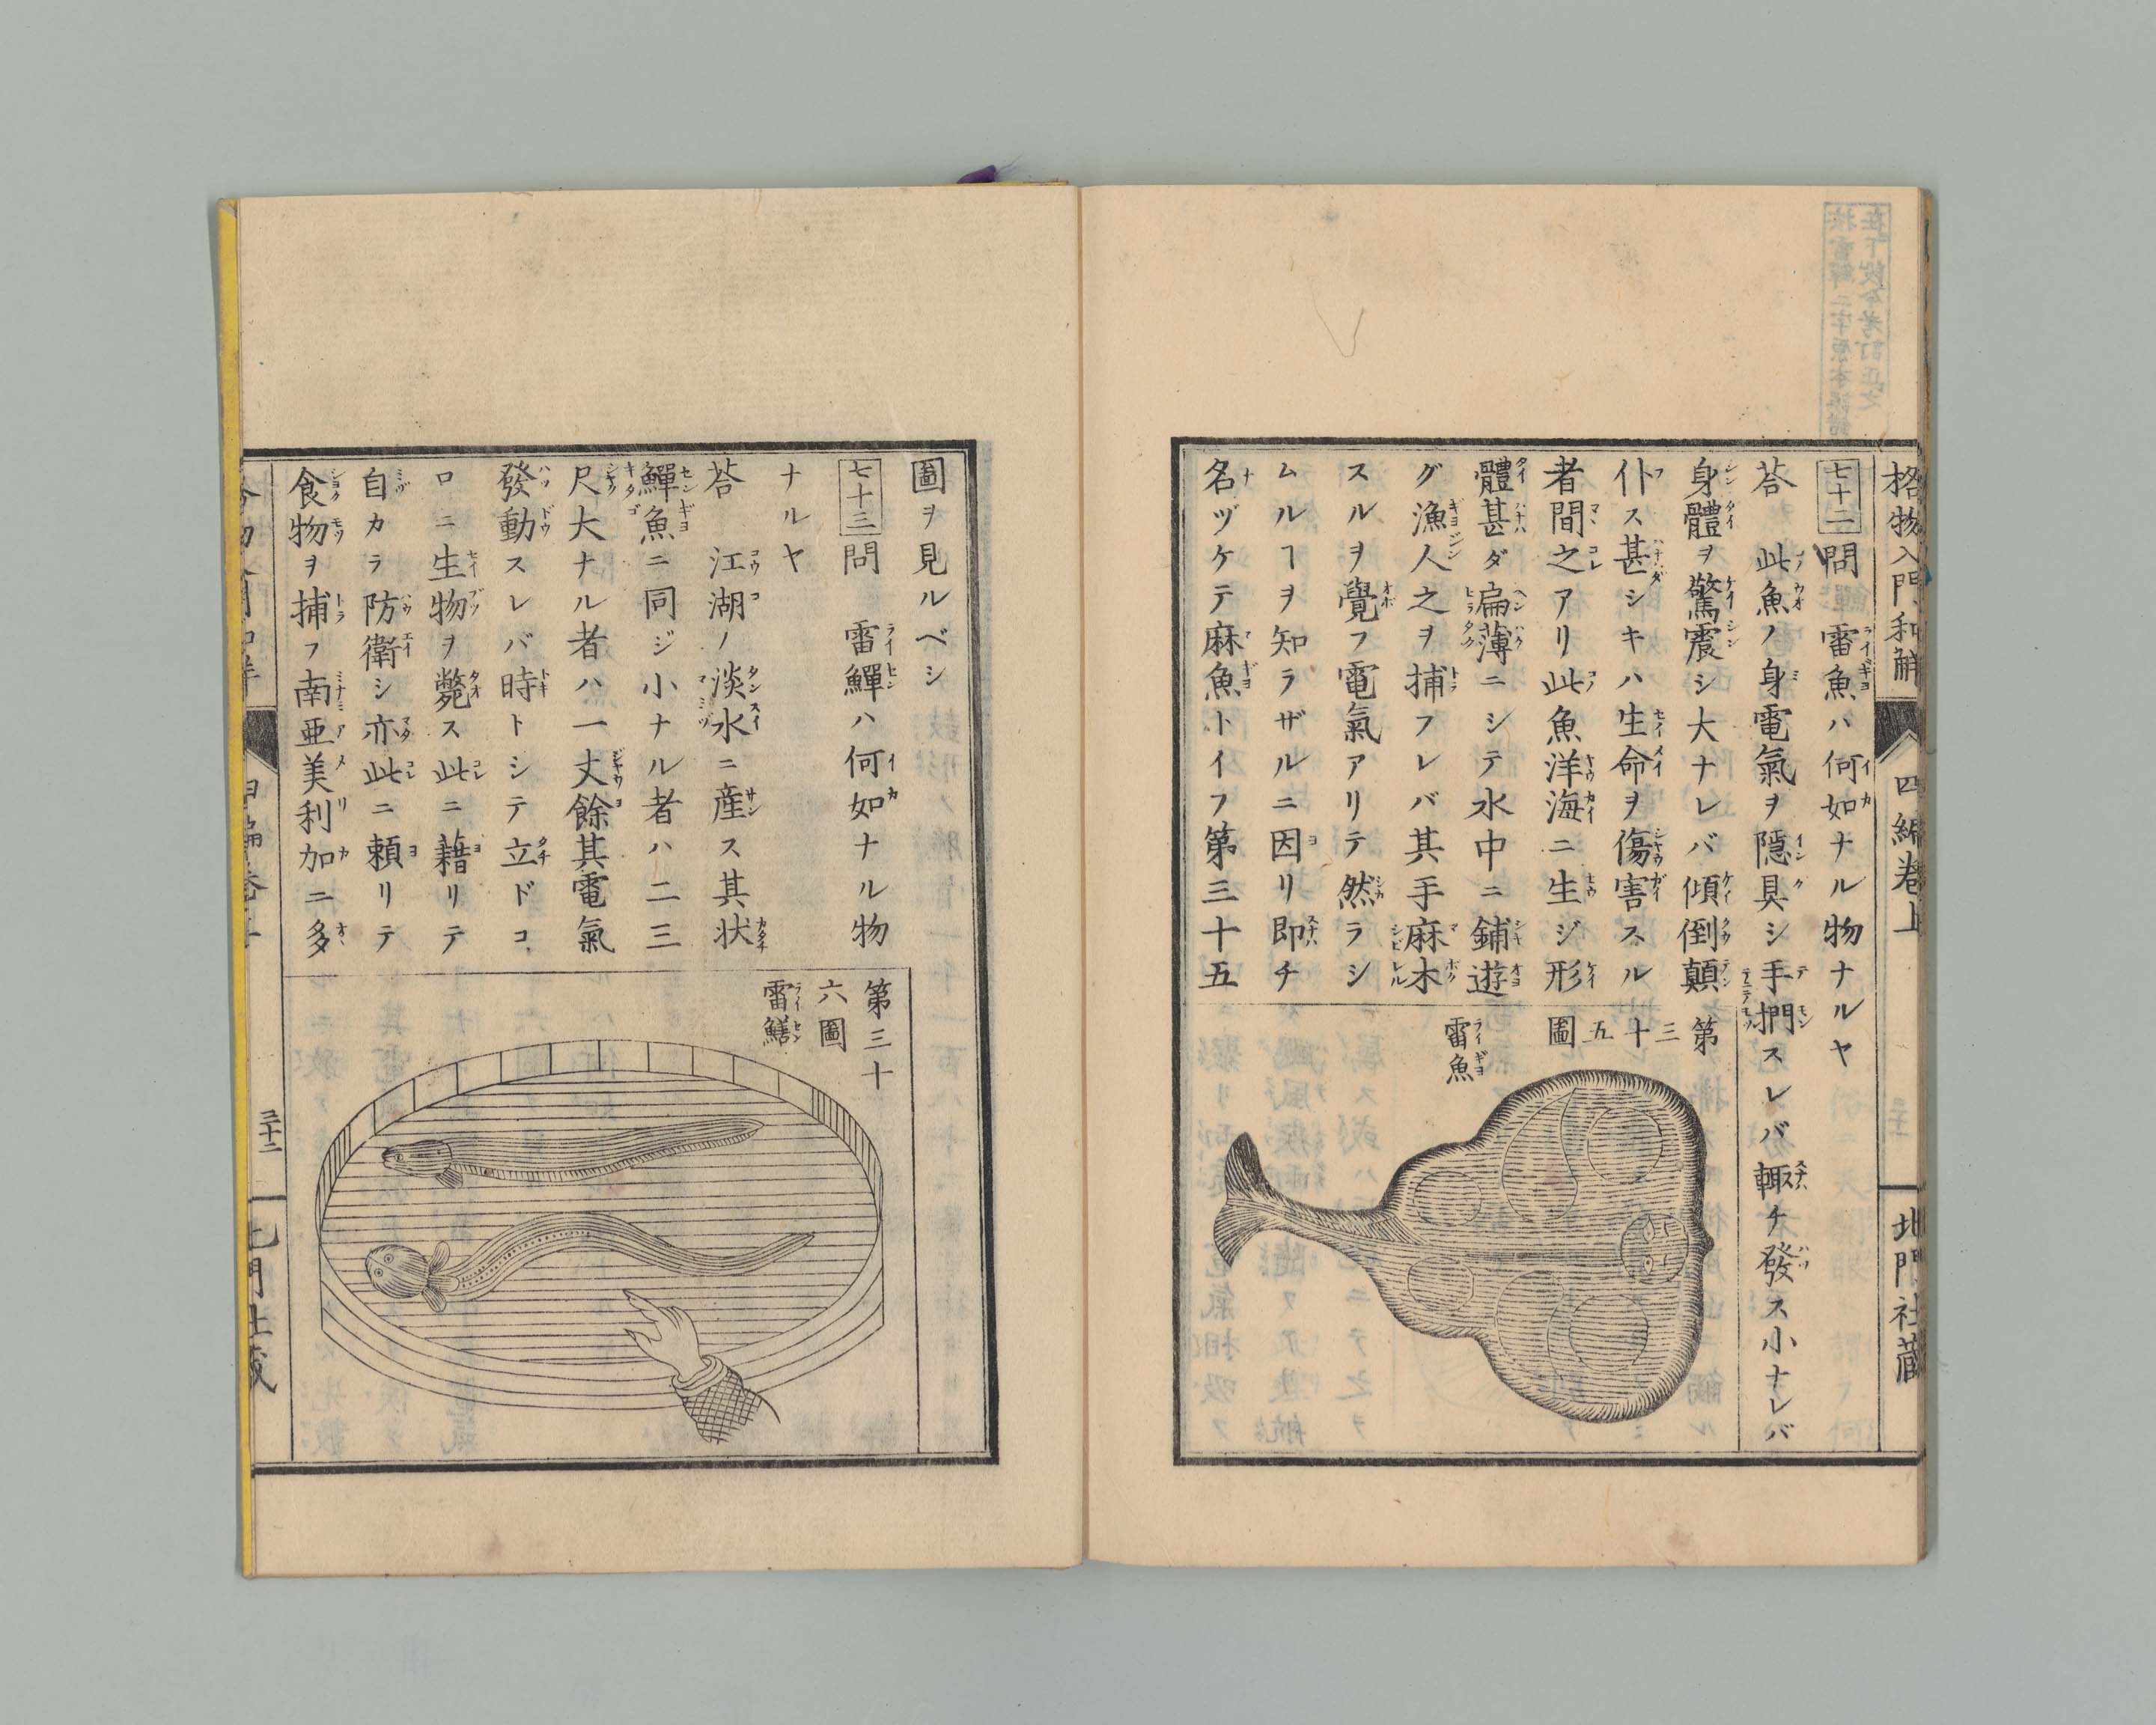 格物入門和解 四編卷上 北門社蔵
七十二 問 雷魚ハ何如ナル物ナルヤ
荅 此魚ノ身電氣ヲ隱具シ手捫スレバ輙チ發ス小ナレバ
身體ヲ驚震シ大ナレバ傾倒顛
仆ス甚シキハ生命ヲ傷害スル
者間之アリ此魚洋海ニ生ジ形
體甚ダ扁薄ニシテ水中ニ鋪遊
グ漁人之ヲ捕フレバ其手麻木
スルヲ覺フ電氣アリテ然ラシ
ムルヿヲ知ラザルニ因リ即チ
名ヅケテ麻魚トイフ第三十五
第三十五圖
雷魚
圖ヲ見ルベシ
七十三 問 雷鱓ハ何如ナル物
ナルヤ
荅 江湖ノ淡水ニ産ス其状
鱓魚ニ同ジ小ナル者ハ二三
尺大ナル者ハ一丈餘其電氣
發動スレバ時トシテ立ドコ
ロニ生物ヲ斃ス此ニ藉リテ
自カラ防衛シ亦此ニ頼リテ
食物ヲ捕フ南亜美利加ニ多
第三十
六圖
雷鱔
三十二